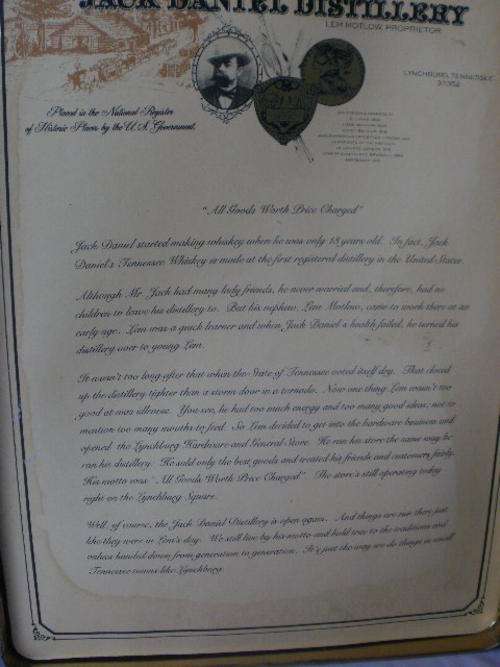 JACK DANIEL DISTILLERY
LEM MOTLOW, PROPRIETOR
LYNCHBURG, TENNESSEE
37352
Placed in the National Register
of Historic Places by the U.S. Government.
"All Goods Worth Price Charged"
Jack Daniel started making whiskey when he was only 13 years old. In fact, Jack
Daniel's Tennessee Whiskey is made at the first registered distillery in the United States.
Although Mr. Jack had many lady friends, he never married and, therefore, had no
children to leave his distillery to. But his nephew, Lem Motlow, came to work there at an
early age. Lem was a quick learner and when Jack Daniel's health failed, he turned his
distillery over to young Lem.
It wasn't too long after that when the State of Tennessee voted itself dry. That closed
up the distillery tighter than a storm door in a tornado. Now one thing Lem wasn't too
good at was idleness. You see, he had too much energy and too many good ideas; not to
mention too many mouths to feed. So Lem decided to get into the hardware business and
opened the Lynchburg Hardware and General Store. He ran his store the same way he
ran his distillery. He sold only the best goods and treated his friends and customers fairly.
His motto was "All Goods Worth Price Charged" The store's still operating today
right on the Lynchburg Square.
Well, of course, the Jack Daniel Distillery is open again. And things are run there just
like they were in Lem's day. We still live by his motto and hold true to the traditions and
values handed down from generation to generation. It's just the way we do things in small
Tennessee towns like Lynchburg.